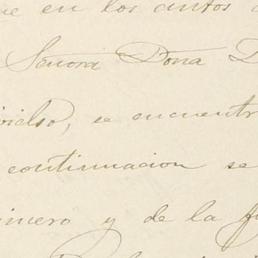 ue en los autos
Señora Doña D
se encuentr
continuacion se
imero y de la f